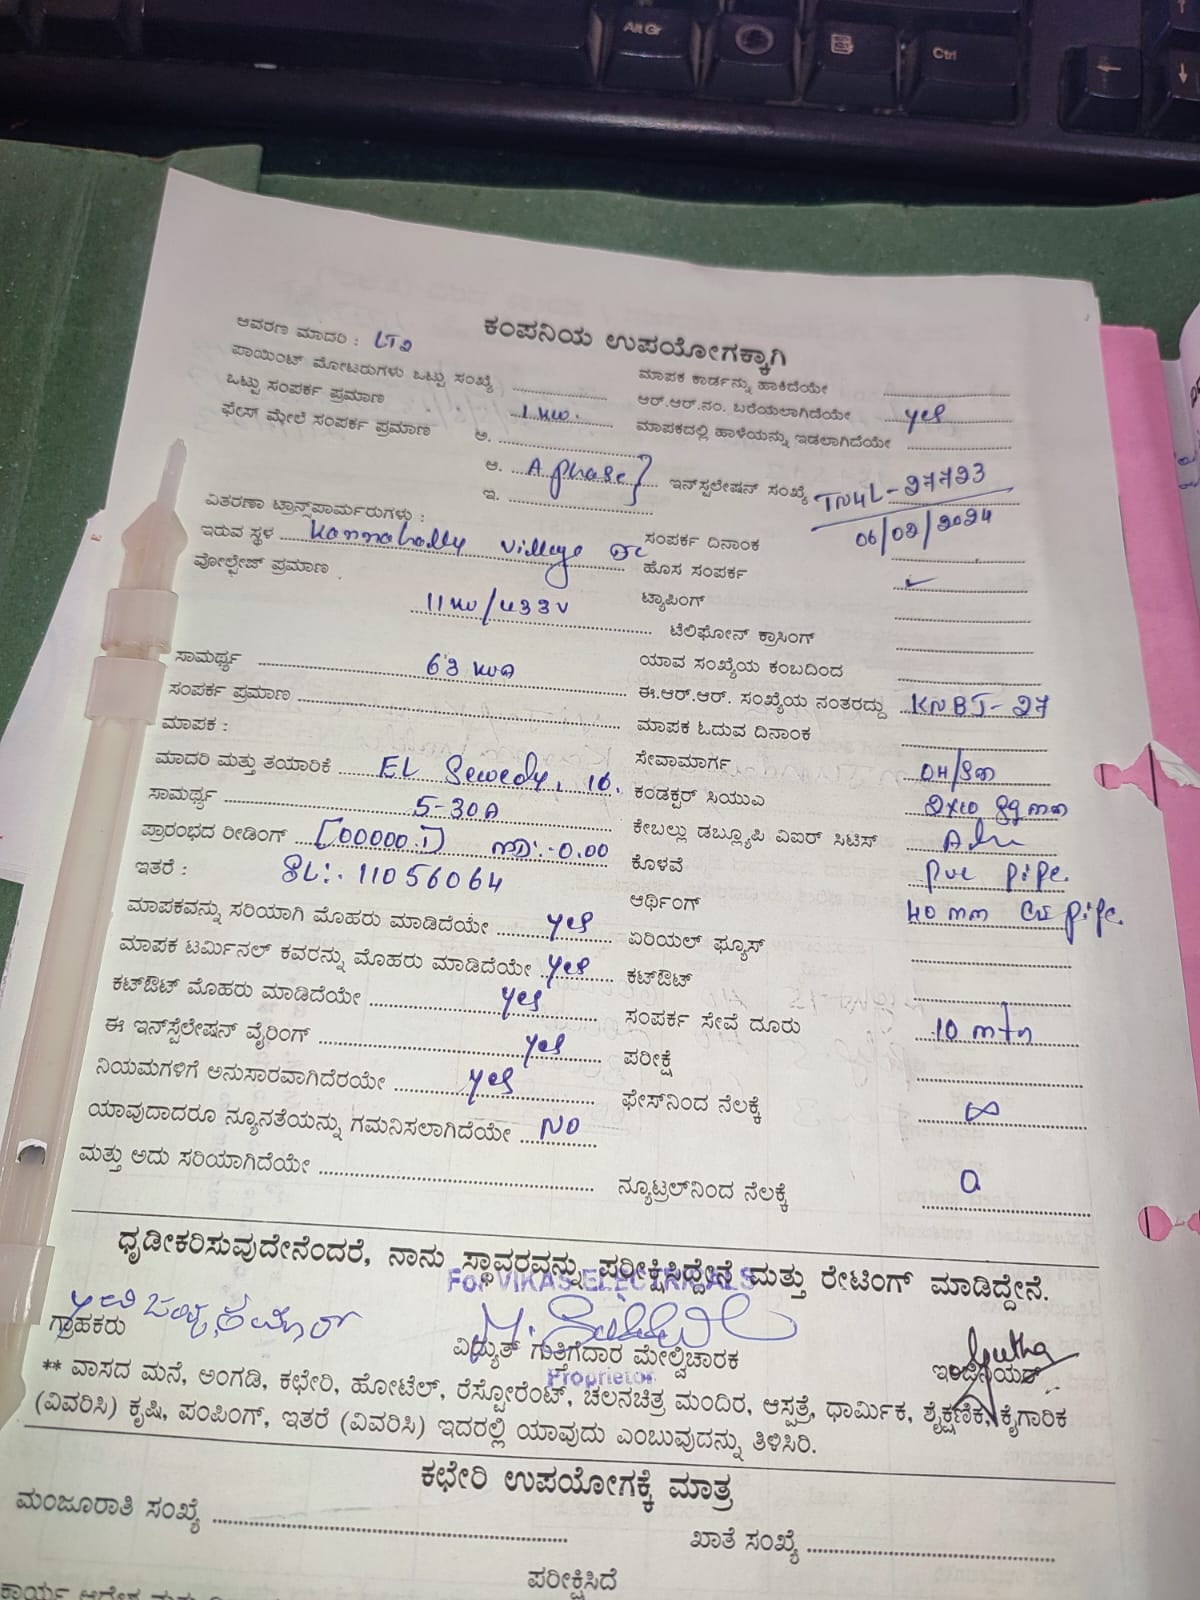 Alt Gr
Ctrl
ಕಂಪನಿಯ ಉಪಯೋಗಕ್ಕಾಗಿ
ಆವರಣ ಮಾದರಿ : LT2
ಪಾಯಿಂಟ್ ಮೋಟರುಗಳು ಒಟ್ಟು ಸಂಖ್ಯೆ
ಮಾಪಕ ಕಾರ್ಡನ್ನು ಹಾಕಿದೆಯೇ
ಒಟ್ಟು ಸಂಪರ್ಕ ಪ್ರಮಾಣ 1 KW.
ಆರ್.ಆರ್.ನಂ. ಬರೆಯಲಾಗಿದೆಯೇ yes
ಫೇಸ್ ಮೇಲೆ ಸಂಪರ್ಕ ಪ್ರಮಾಣ ಅ.
ಮಾಪಕದಲ್ಲಿ ಹಾಳೆಯನ್ನು ಇಡಲಾಗಿದೆಯೇ
ಆ. A phase
ಇನ್‌ಸ್ಟಲೇಷನ್ ಸಂಖ್ಯೆ TN4L-27723
ಇ.
ವಿತರಣಾ ಟ್ರಾನ್ಸ್‌ಫಾರ್ಮರುಗಳು :
06/02/2024
ಇರುವ ಸ್ಥಳ village
ಸಂಪರ್ಕ ದಿನಾಂಕ
ವೋಲ್ಟೇಜ್ ಪ್ರಮಾಣ
ಹೊಸ ಸಂಪರ್ಕ ✓
11KV/433V
ಟ್ಯಾಪಿಂಗ್
ಟೆಲಿಫೋನ್ ಕ್ರಾಸಿಂಗ್
ಸಾಮರ್ಥ್ಯ 63 KVA
ಯಾವ ಸಂಖ್ಯೆಯ ಕಂಬದಿಂದ
ಸಂಪರ್ಕ ಪ್ರಮಾಣ
ಈ.ಆರ್.ಆರ್. ಸಂಖ್ಯೆಯ ನಂತರದ್ದು KNBJ-27
ಮಾಪಕ :
ಮಾಪಕ ಓದುವ ದಿನಾಂಕ
ಮಾದರಿ ಮತ್ತು ತಯಾರಿಕೆ EL Sewedy, 10.
ಸೇವಾಮಾರ್ಗ OH/
ಸಾಮರ್ಥ್ಯ 5-30A
ಕಂಡಕ್ಟರ್ ಸಿಯುಎ 2x10 sq mm
ಪ್ರಾರಂಭದ ರೀಡಿಂಗ್ [00000.1] 0.00
ಕೇಬಲ್ಲು ಡಬ್ಲ್ಯೂಪಿ ವಿಐರ್ ಸಿಟಿಸ್
ಇತರೆ : SL:. 11056064
ಕೊಳವೆ PVC pipe.
ಆರ್ಥಿಂಗ್ 40 mm GI pipe.
ಮಾಪಕವನ್ನು ಸರಿಯಾಗಿ ಮೊಹರು ಮಾಡಿದೆಯೇ yes
ಏರಿಯಲ್ ಫ್ಯೂಸ್
ಮಾಪಕ ಟರ್ಮಿನಲ್ ಕವರನ್ನು ಮೊಹರು ಮಾಡಿದೆಯೇ yes
ಕಟ್‌ಔಟ್
ಕಟ್‌ಔಟ್ ಮೊಹರು ಮಾಡಿದೆಯೇ yes
ಸಂಪರ್ಕ ಸೇವೆ ದೂರು 10 mtr
ಈ ಇನ್‌ಸ್ಟೆಲೇಷನ್ ವೈರಿಂಗ್ yes
ಪರೀಕ್ಷೆ
ನಿಯಮಗಳಿಗೆ ಅನುಸಾರವಾಗಿದೆರಯೇ yes
ಫೇಸ್‌ನಿಂದ ನೆಲಕ್ಕೆ ∞
ಯಾವುದಾದರೂ ನ್ಯೂನತೆಯನ್ನು ಗಮನಿಸಲಾಗಿದೆಯೇ NO
ಮತ್ತು ಅದು ಸರಿಯಾಗಿದೆಯೇ
ನ್ಯೂಟ್ರಲ್‌ನಿಂದ ನೆಲಕ್ಕೆ 0
ಧೃಡೀಕರಿಸುವುದೇನೆಂದರೆ, ನಾನು ಸ್ಥಾವರವನ್ನು ಪರೀಕ್ಷಿಸಿದ್ದೇನೆ ಮತ್ತು ರೇಟಿಂಗ್ ಮಾಡಿದ್ದೇನೆ.
For VIKAS ELECTRICALS
ಗ್ರಾಹಕರು
ವಿದ್ಯುತ್ ಗುತ್ತಿಗೆದಾರ ಮೇಲ್ವಿಚಾರಕ
ಇಂಜಿನಿಯರ್
Proprietor
** ವಾಸದ ಮನೆ, ಅಂಗಡಿ, ಕಛೇರಿ, ಹೋಟೆಲ್, ರೆಸ್ಟೋರೆಂಟ್, ಚಲನಚಿತ್ರ ಮಂದಿರ, ಆಸ್ಪತ್ರೆ, ಧಾರ್ಮಿಕ, ಶೈಕ್ಷಣಿಕ, ಕೈಗಾರಿಕ
(ವಿವರಿಸಿ) ಕೃಷಿ, ಪಂಪಿಂಗ್, ಇತರೆ (ವಿವರಿಸಿ) ಇದರಲ್ಲಿ ಯಾವುದು ಎಂಬುವುದನ್ನು ತಿಳಿಸಿರಿ.
ಕಛೇರಿ ಉಪಯೋಗಕ್ಕೆ ಮಾತ್ರ
ಮಂಜೂರಾತಿ ಸಂಖ್ಯೆ
ಖಾತೆ ಸಂಖ್ಯೆ
ಪರೀಕ್ಷಿಸಿದೆ